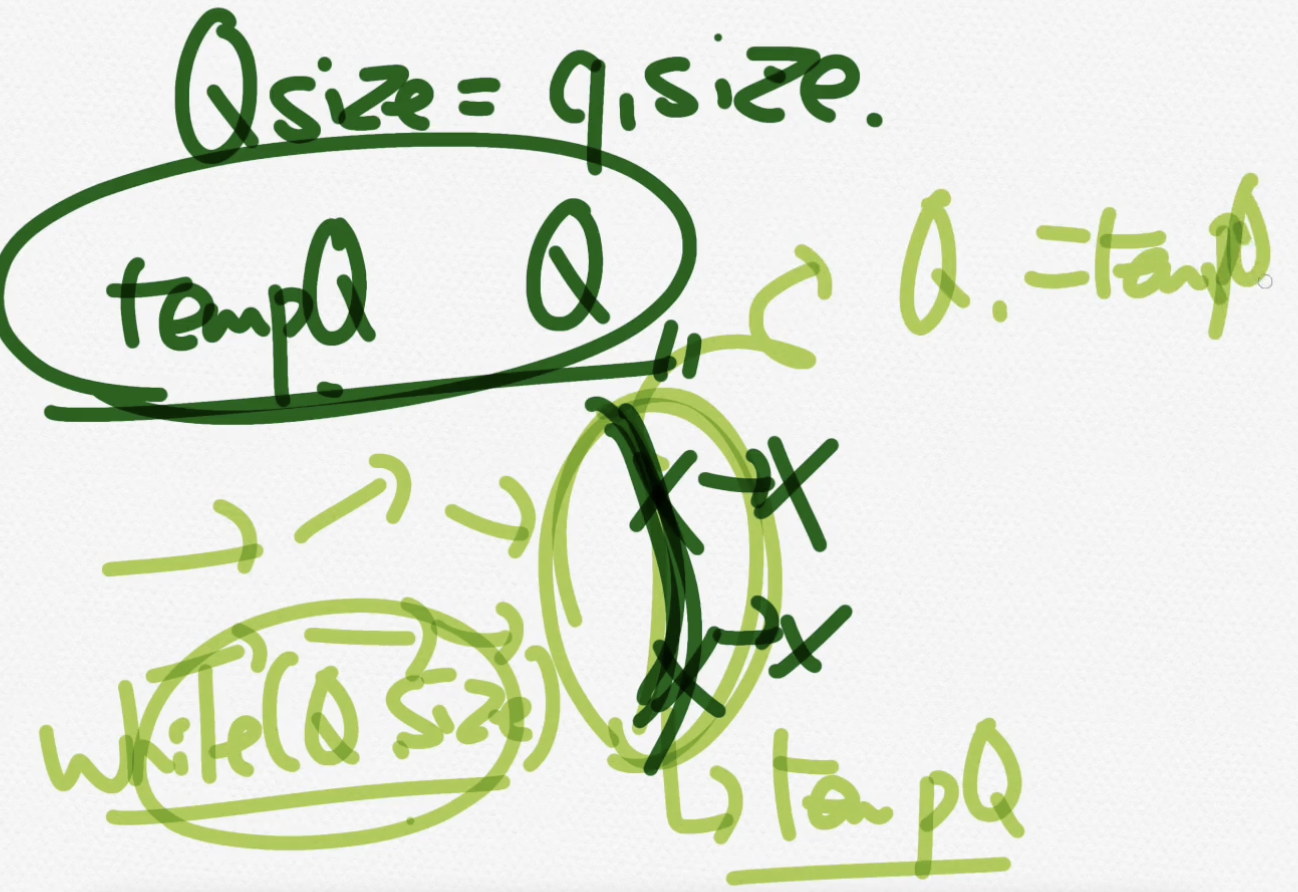 Qsize = q.size.
tempQ Q
Q. = tempQ
X → X
X → X
while(Q size)
tempQ